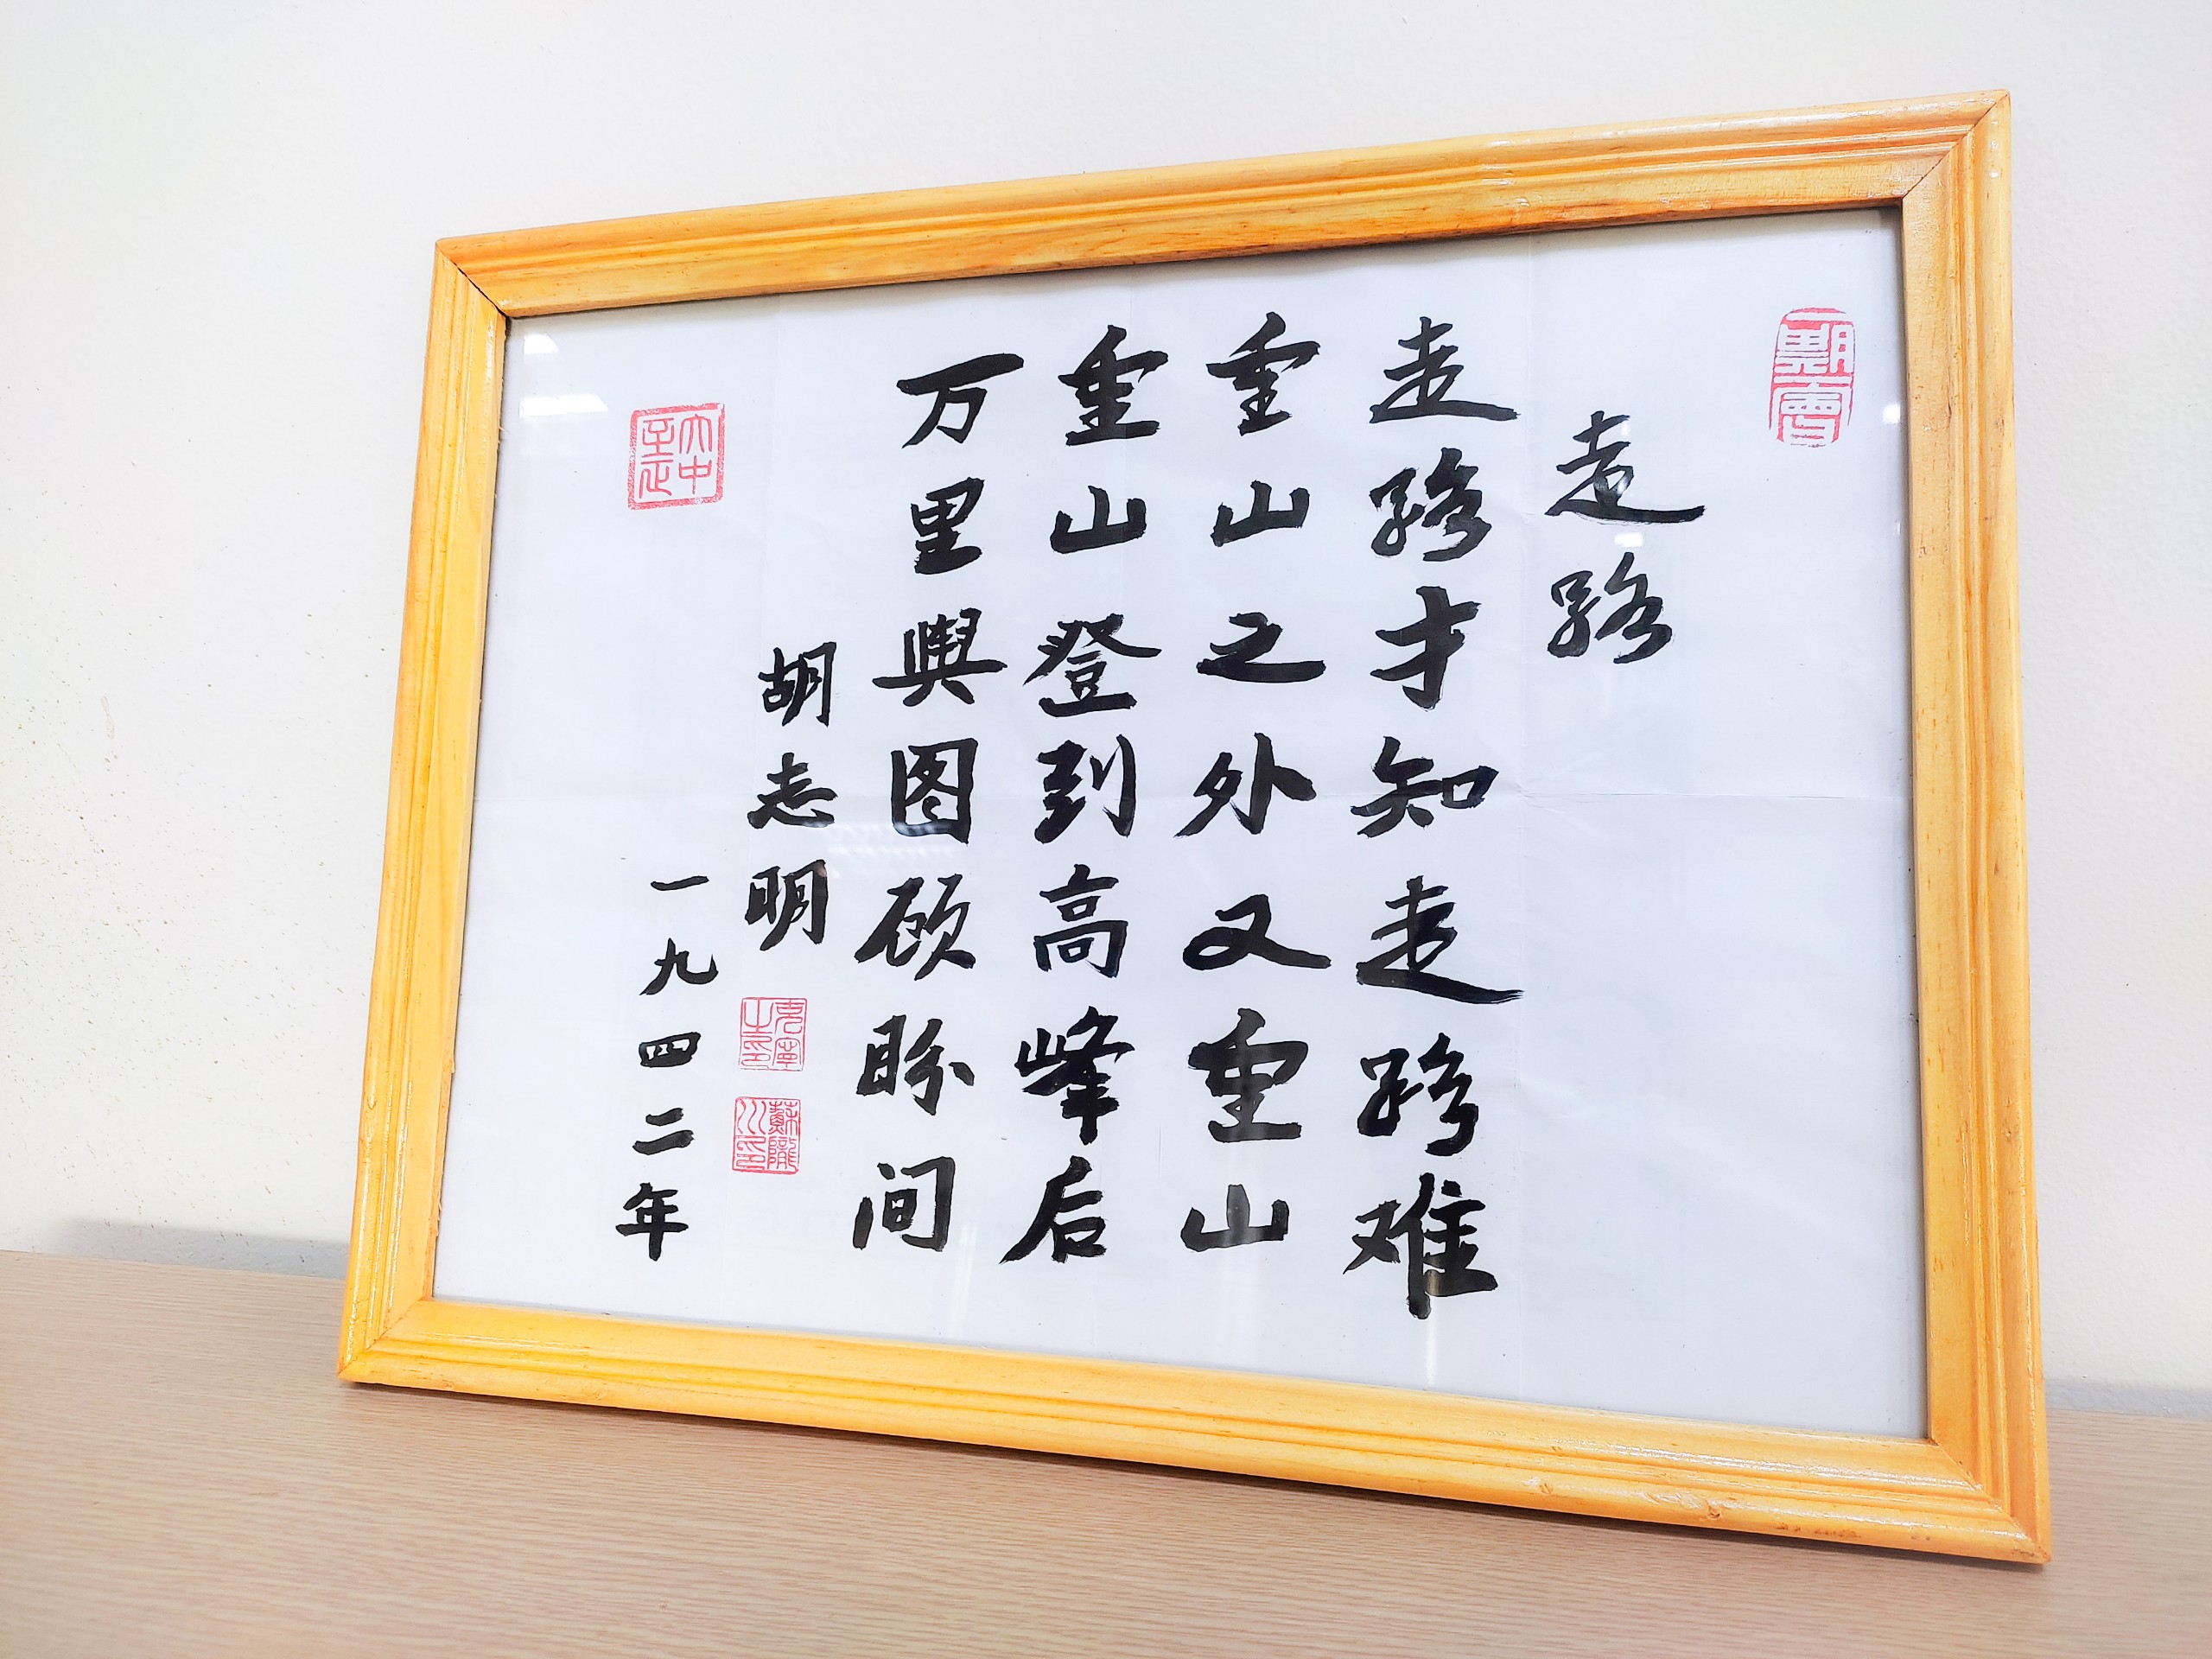 走路
走路才知走路难
重山之外又重山
重山登到高峰后
万里舆图顾盼间
胡志明
一九四二年
大中至正